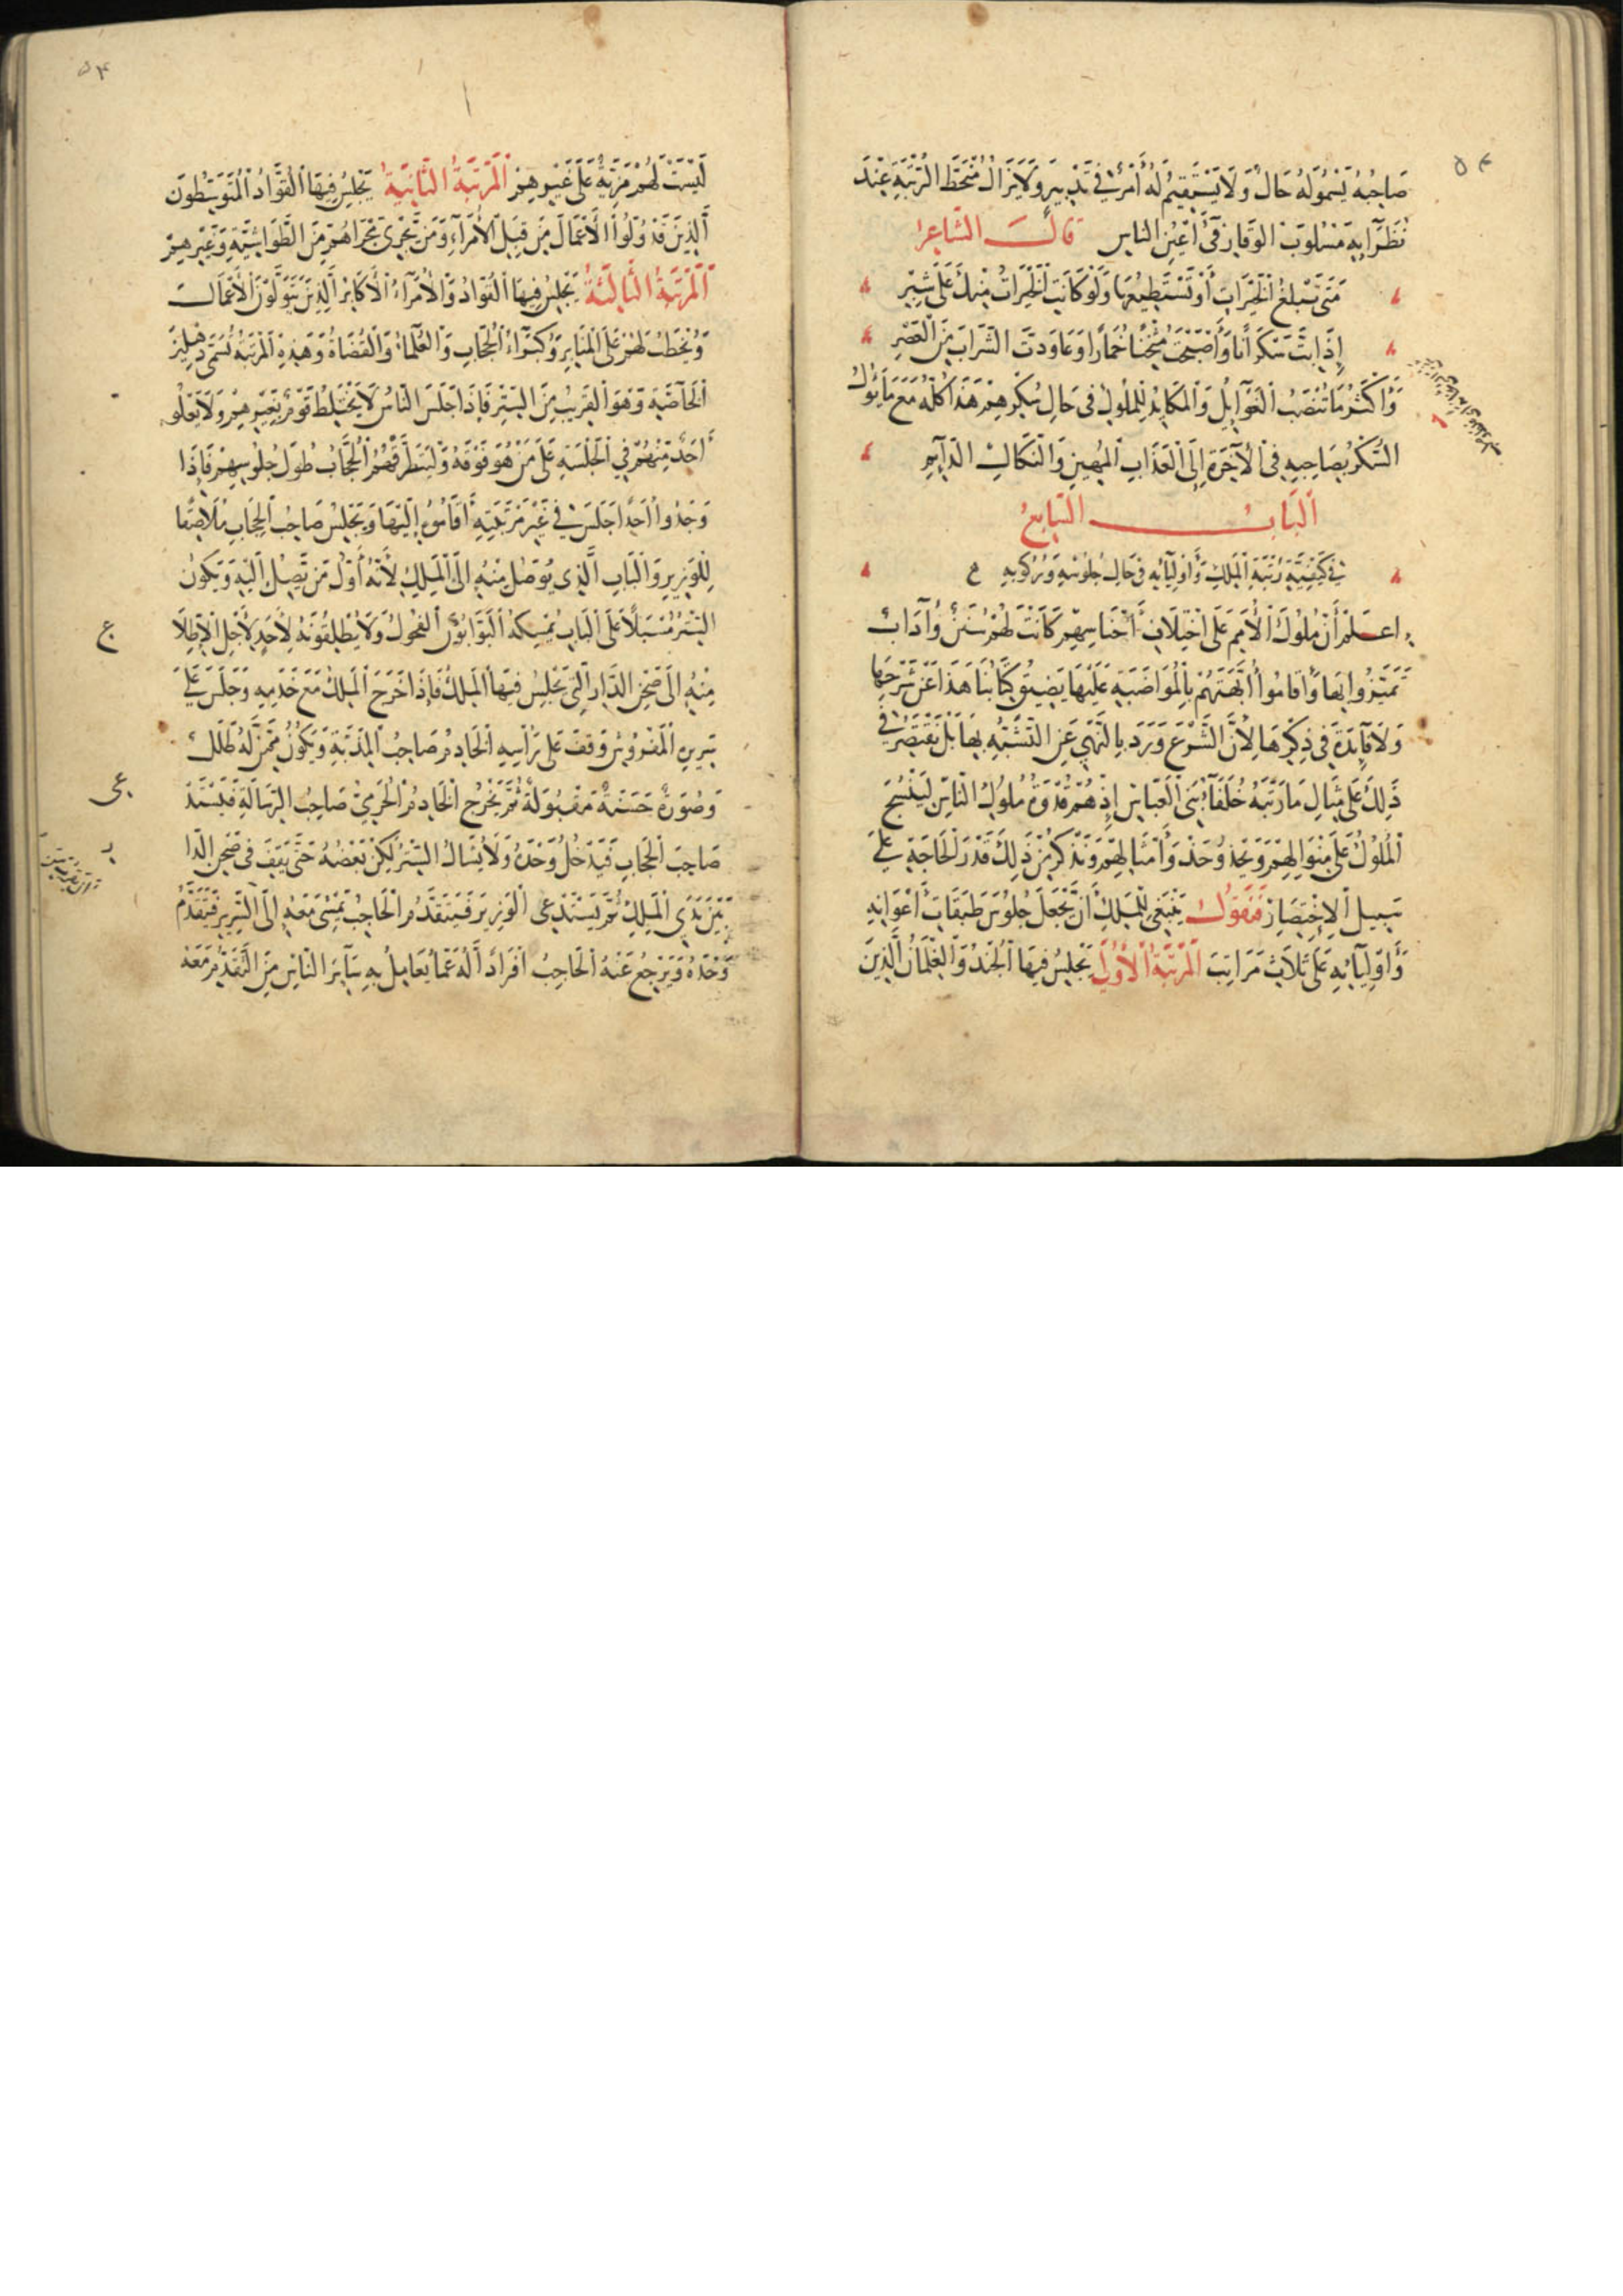 ٥٣
صَاحِبُهُ يَسْمُولَهُ حَالٌ وَلَا يَسْتَقِيمُ لَهُ أَمْرٌ فِي تَدْبِيرٍ وَلَا يَزَالُ مُنْحَطَّ الرُّتْبَةِ عِنْدَ
نُظَرَآئِهِ مَسْلُوبَ الوَقَارِ فِي أَعْيُنِ النَّاسِ قَالَ الشَّاعِرُ
مَتَى تَبْلُغِ الْخَيْرَاتِ أَوْ تَسْتَطِيعُهَا وَلَوْ كَانَتِ الْخَيْرَاتُ مِنْكَ عَلَى شِبْرِ
إِذَا بِتَّ سَكْرَانًا وَأَصْبَحْتَ مُثْخَنًا خُمَارًا وَعَاوَدْتَ الشَّرَابَ مِنَ الْعَصْرِ
وَأَكْثَرُ مَا تُنْصَبُ الْغَوَآئِلُ وَالْمَكَايِدُ لِلْمُلُوكِ فِي حَالِ سُكْرِهِمْ هَذَا كُلُّهُ مَعَ مَا يَؤُلُ
السُّكْرُ بِصَاحِبِهِ فِي الْآخِرَةِ إِلَى الْعَذَابِ الْمُهِينِ وَالنَّكَالِ الدَّآئِمِ
اَلْبَابُ السَّابِعُ
فِي كَيْفِيَّةِ رُتْبَةِ الْمَلِكِ وَأَوْلِيَآئِهِ فِي حَالِ جُلُوسِهِ وَرُكُوبِهِ
اعْلَمْ أَنَّ مُلُوكَ الْأُمَمِ عَلَى اخْتِلَافِ أَجْنَاسِهِمْ كَانَتْ لَهُمْ سُنَنٌ وَآدَابٌ
تَمَيَّزُوا بِهَا وَأَقَامُوا أُبَّهَتَهُمْ بِالْمُوَاضَبَةِ عَلَيْهَا يَضِيقُ كِتَابُنَا هَذَا عَنْ شَرْحِهَا
وَلَا فَآئِدَةَ فِي ذِكْرِهَا لِأَنَّ الشَّرْعَ وَرَدَ بِالنَّهْيِ عَنِ التَّشَبُّهِ بِهَا بَلْ نَقْتَصِرُ فِي
ذَلِكَ عَلَى مِثَالِ مَا رَتَّبَهُ خُلَفَآءُ بَنِي الْعَبَّاسِ إِذْ هُمْ قُدْوَةُ مُلُوكِ النَّاسِ لِيَنْسُجَ
الْمُلُوكُ عَلَى مِنْوَالِهِمْ وَيَحْذُو حَذْوَ أَمْثَالِهِمْ وَنَذْكُرُ مِنْ ذَلِكَ قَدْرَ الْحَاجَةِ عَلَى
سَبِيلِ الْإِخْتِصَارِ فَنَقُولُ يَنْبَغِي لِلْمَلِكِ أَنْ يَجْعَلَ جُلُوسَ طَبَقَاتِ أَعْوَانِهِ
وَأَوْلِيَآئِهِ عَلَى ثَلَاثِ مَرَاتِبَ اَلْمَرْتَبَةُ الْأُولَى يَجْلِسُ فِيهَا الْجُنْدُ وَالْغِلْمَانُ الَّذِينَ
٥٤
لَيْسَتْ لَهُمْ مَزِيَّةٌ عَلَى غَيْرِهِمْ اَلْمَرْتَبَةُ الثَّانِيَةُ يَجْلِسُ فِيهَا الْقُوَّادُ الْمُتَوَسِّطُونَ
الَّذِينَ قَدْ وُلُّوا الْأَعْمَالَ مِنْ قِبَلِ الْأُمَرَآءِ وَمَنْ يَجْرِي مَجْرَاهُمْ مِنَ الطَّوَاشِيَّةِ وَغَيْرِهِمْ
اَلْمَرْتَبَةُ الثَّالِثَةُ يَجْلِسُ فِيهَا الْقُوَّادُ وَالْأُمَرَآءُ الْأَكَابِرُ الَّذِينَ يَتَوَلَّوْنَ الْأَعْمَالَ
وَيُخْطَبُ لَهُمْ عَلَى الْمَنَابِرِ وَكُبَرَآءُ الْحُجَّابِ وَالْعُلَمَآءُ وَالْقُضَاةُ وَهَذِهِ الْمَرْتَبَةُ تُسَمَّى دِهْلِيزَ
الْخَاصَّةِ وَهُوَ الْقَرِيبُ مِنَ السِّتْرِ فَإِذَا جَلَسَ النَّاسُ لَا يَخْتَلِطُ قَوْمٌ بِغَيْرِهِمْ وَلَا يَعْلُو
أَحَدٌ مِنْهُمْ فِي الْجَلْسَةِ عَلَى مَنْ هُوَ فَوْقَهُ وَلْيَنْظُرْ فَهْمُ الْحُجَّابُ طُولَ جُلُوسِهِمْ فَإِذَا
وَجَدُوا أَحَدًا جَلَسَ فِي غَيْرِ مَرْتَبَتِهِ أَقَامُوهُ إِلَيْهَا وَيَجْلِسُ صَاحِبُ الْحِجَابِ مُلَاصِقًا
لِلْوَزِيرِ وَالْبَابِ الَّذِي يُوصَلُ مِنْهُ إِلَى الْمَلِكِ لِأَنَّهُ أَوَّلُ مَنْ يَصِلُ إِلَيْهِ وَيَكُونُ
السِّتْرُ مُسْبَلًا عَلَى الْبَابِ يُمْسِكُهُ الْبَوَّابُونَ الْفُحُولُ وَلَا يُطْلِقُونَهُ لِأَحَدٍ لِأَجْلِ الْإِطِّلَا
مِنْهُ إِلَى صَحْنِ الدَّارِ الَّتِي يَجْلِسُ فِيهَا الْمَلِكُ فَإِذَا خَرَجَ الْمَلِكُ مَعَ خَدَمِهِ وَجَلَسَ عَلَى
سَرِيرِ الْمَفْرُوشِ وَقَفَ عَلَى رَأْسِهِ الْخَادِمُ صَاحِبُ الْمِذَبَّةِ وَيَكُونُ مِمَّنْ لَهُ طَلَلٌ
وَصُورَةٌ حَسَنَةٌ مَقْبُولَةٌ ثُمَّ يَخْرُجُ الْخَادِمُ الْحَرَمِيُّ صَاحِبُ الرِّسَالَةِ فَيَسْتَدْ
صَاحِبَ الْحِجَابِ فَيَدْخُلُ وَحْدَهُ وَلَا يُشَالُ السِّتْرُ لَكِنْ بَعْضُهُ حَتَّى يَقِفَ فِي صَحْنِ الدَّا
بَيْنَ يَدَيِ الْمَلِكِ ثُمَّ يَسْتَدْعِي الْوَزِيرَ فَيَتَقَدَّمُ الْحَاجِبُ يَمْشِي مَعَهُ إِلَى السَّرِيرِ فَيَتَقَدَّمُ
وَحْدَهُ وَيَرْجِعُ عَنْهُ الْحَاجِبُ اَفْرَادًا لَهُ عَمَّا يُعَامِلُ بِهِ سَآئِرَ النَّاسِ مِنَ التَّقَدُّمِ مَعَهُ
ع
عى
ر